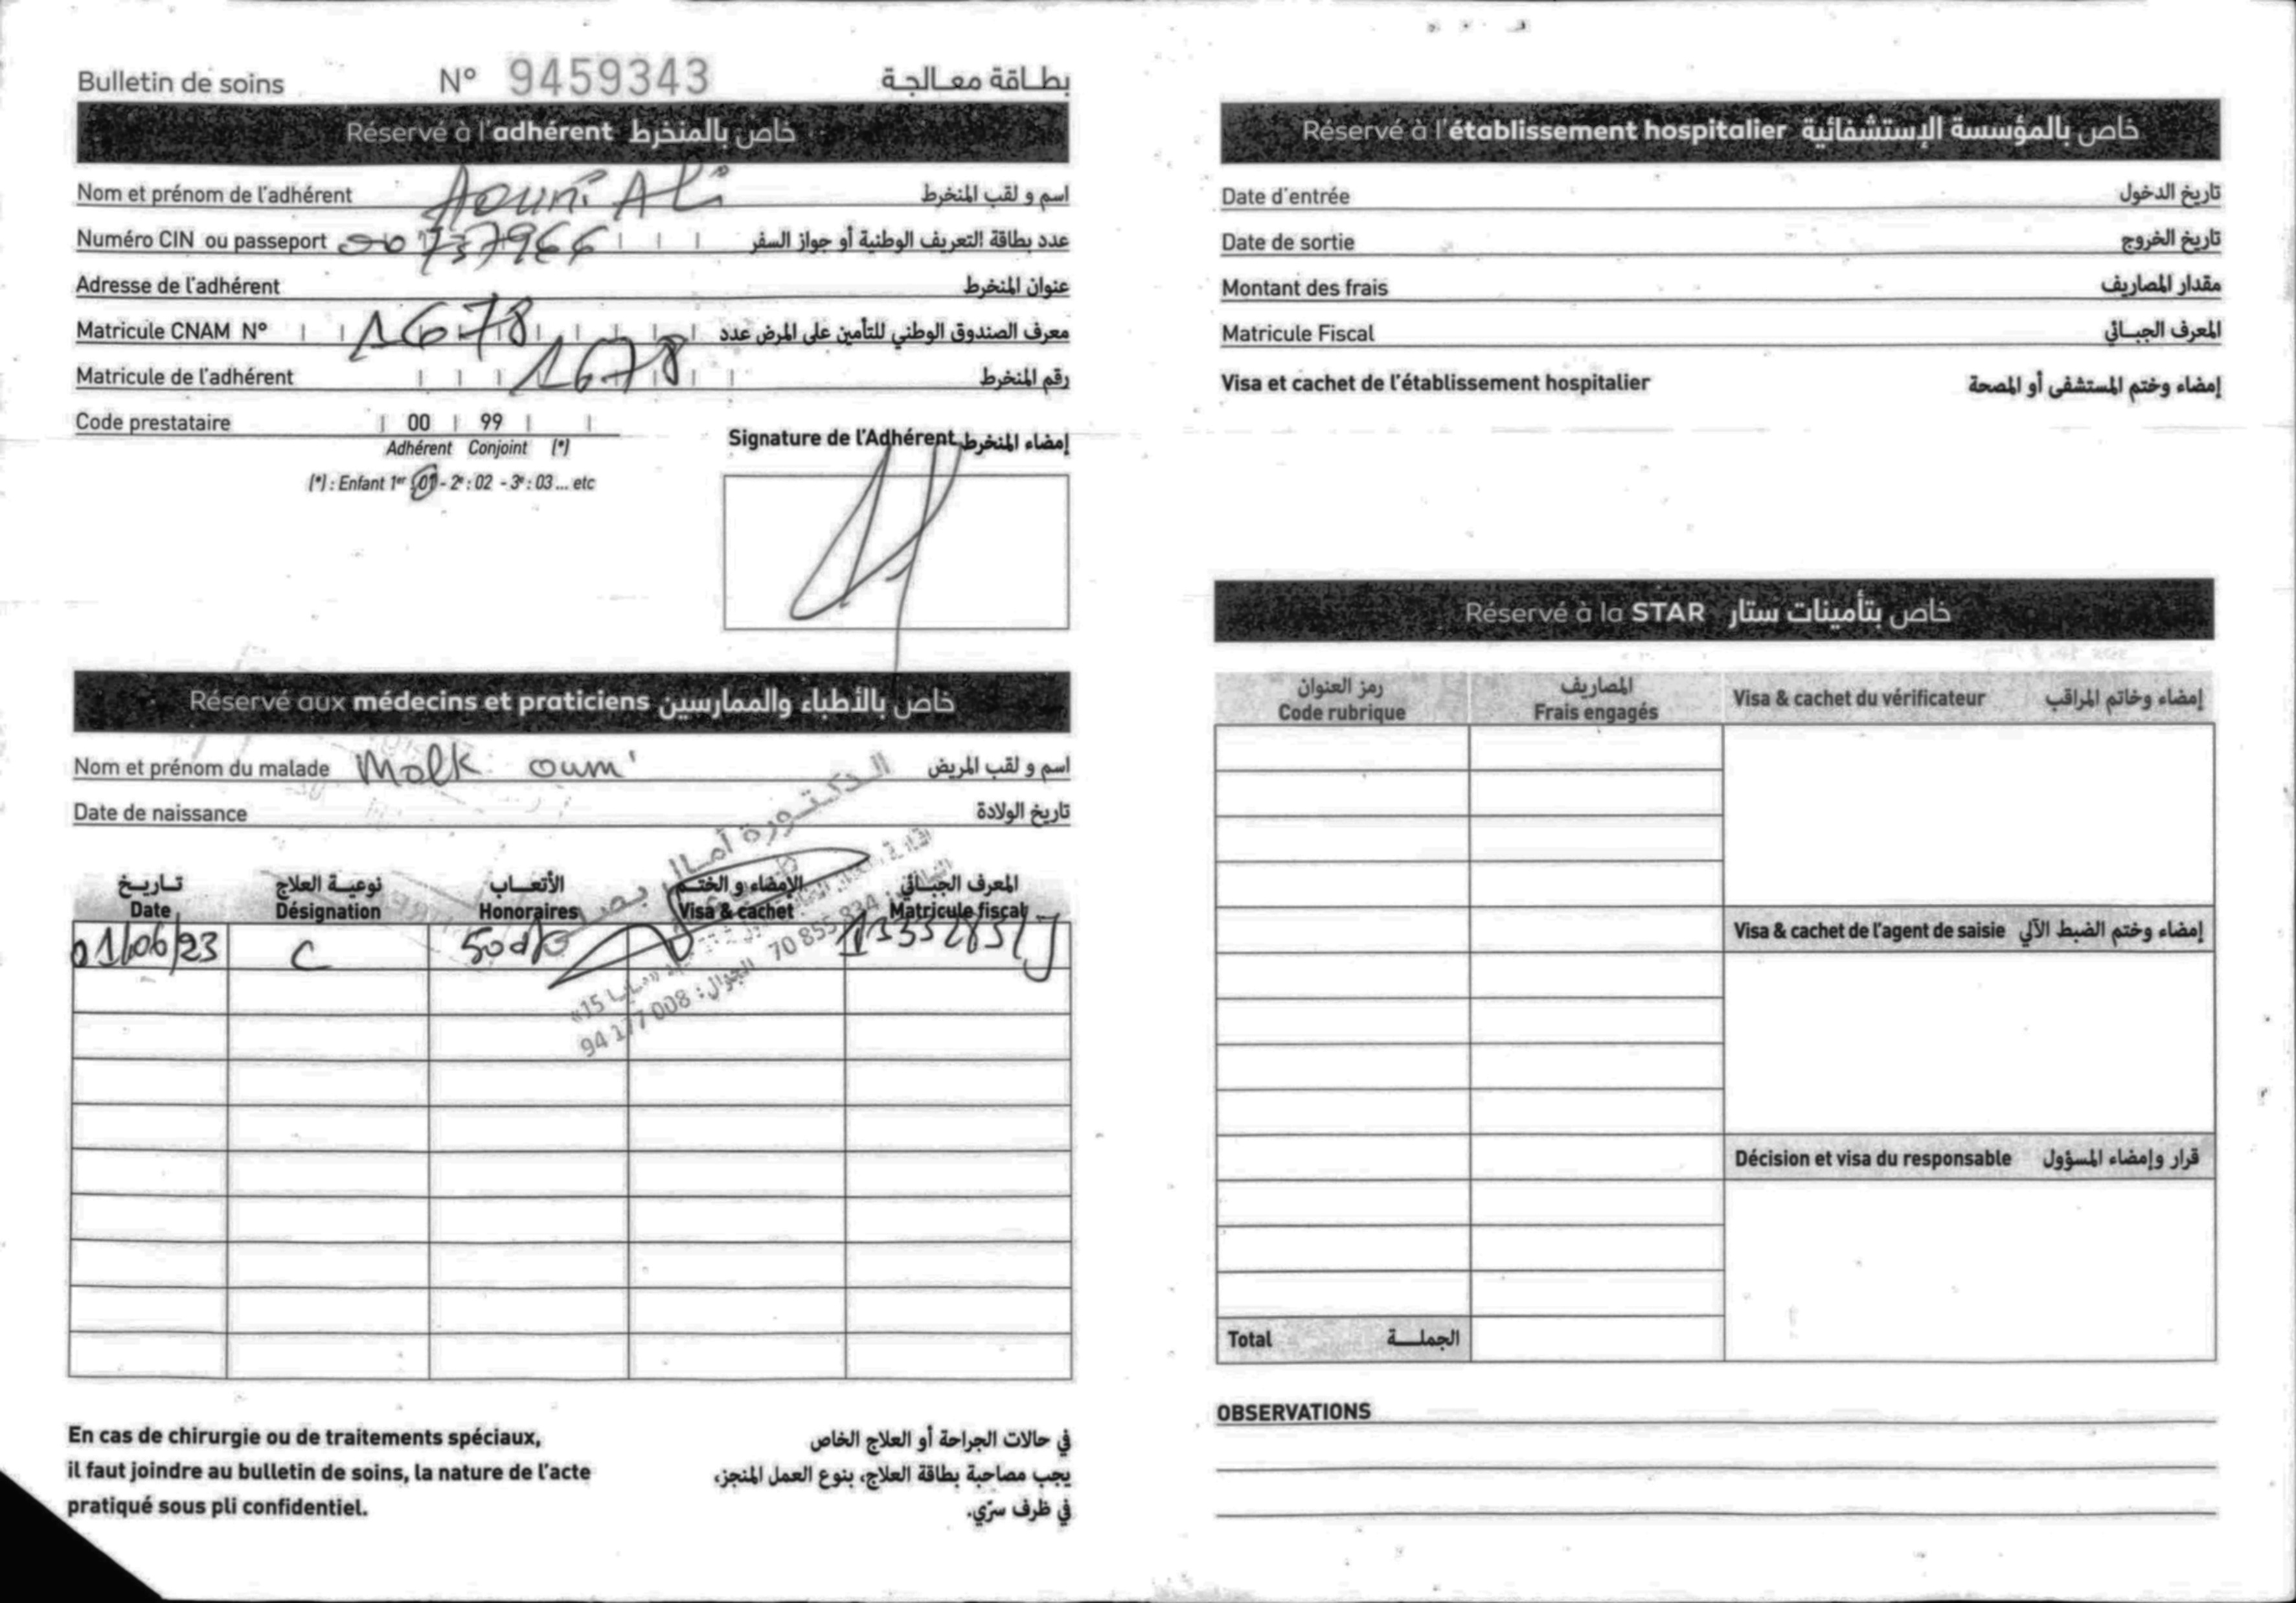 Bulletin de soins N° 9459343 بطاقة معالجة
Réservé à l'adhérent خاص بالمنخرط
Nom et prénom de l'adhérent Aouni Ali اسم و لقب المنخرط
Numéro CIN ou passeport 00737966 عدد بطاقة التعريف الوطنية أو جواز السفر
Adresse de l'adhérent عنوان المنخرط
Matricule CNAM N° 1678 معرف الصندوق الوطني للتأمين على المرض عدد
Matricule de l'adhérent 1678 رقم المنخرط
Code prestataire 00 99
Adhérent Conjoint (*)
(*) : Enfant 1er : 01 - 2e : 02 - 3e : 03 ... etc
Signature de l'Adhérent إمضاء المنخرط
Réservé aux médecins et praticiens خاص بالأطباء والممارسين
Nom et prénom du malade Molk ouni اسم و لقب المريض
Date de naissance تاريخ الولادة
الدكتورة أمال
تاريخ نوعية العلاج الأتعاب الإمضاء و الختم المعرف الجبائي
Date Désignation Honoraires Visa & cachet Matricule fiscal
01/06/23 C 50d
70 855 834
94 177 008 الجوال:
En cas de chirurgie ou de traitements spéciaux,
il faut joindre au bulletin de soins, la nature de l'acte
pratiqué sous pli confidentiel.
في حالات الجراحة أو العلاج الخاص
يجب مصاحبة بطاقة العلاج، بنوع العمل المنجز،
في ظرف سرّي.
Réservé à l'établissement hospitalier خاص بالمؤسسة الإستشفائية
Date d'entrée تاريخ الدخول
Date de sortie تاريخ الخروج
Montant des frais مقدار المصاريف
Matricule Fiscal المعرف الجبائي
Visa et cachet de l'établissement hospitalier إمضاء وختم المستشفى أو المصحة
Réservé à la STAR خاص بتأمينات ستار
رمز العنوان المصاريف
Code rubrique Frais engagés Visa & cachet du vérificateur إمضاء وخاتم المراقب
Visa & cachet de l'agent de saisie إمضاء وختم الضبط الآلي
Décision et visa du responsable قرار وإمضاء المسؤول
Total الجملة
OBSERVATIONS